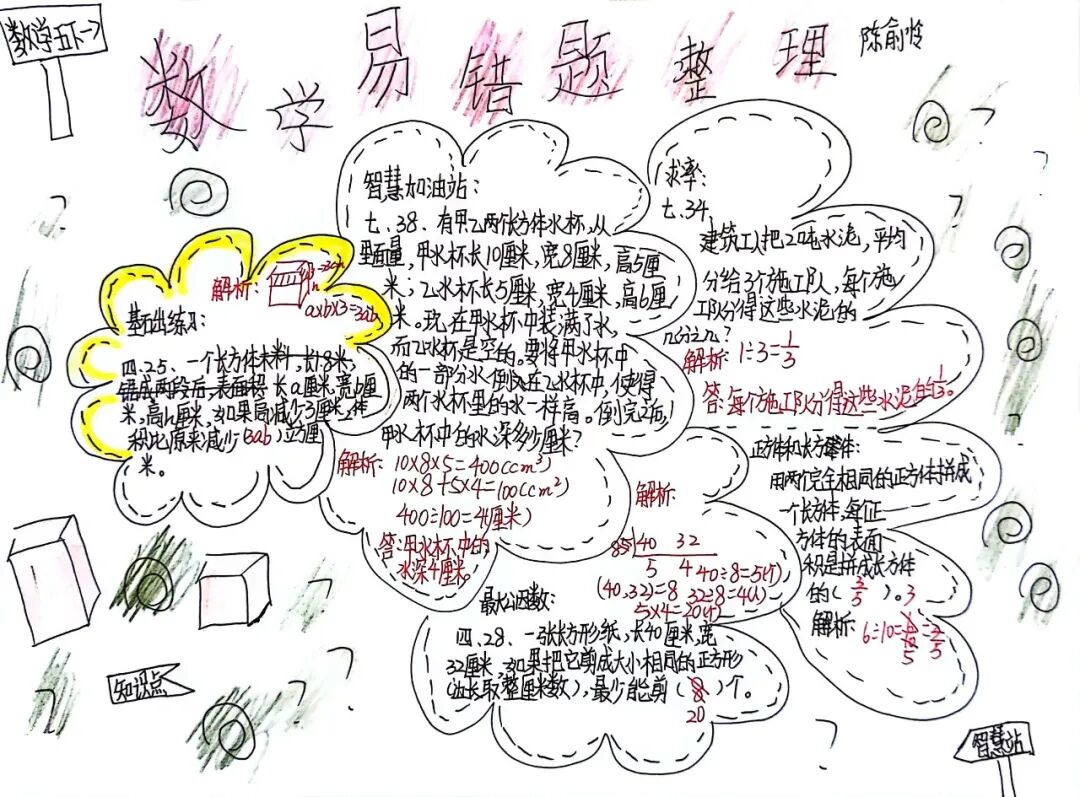 数学五下一
数学易错题整理
陈俞怜
基础练习:
解析:
a×b×3=3ab
四.25、一个长方体木料,长1.8米,
锯成两段后,表面积 长a厘米,宽b厘
米,高h厘米,如果高减少3厘米,体
积比原来减少(3ab)立方厘
米。
智慧加油站:
七.38.有甲乙两个长方体水杯,从
里面量,甲水杯长10厘米,宽8厘米,高5厘
米;乙水杯长5厘米,宽4厘米,高6厘
米。现在甲水杯中装满了水,
而乙水杯是空的。要将甲水杯中
的一部分水倒入在乙水杯中,使得
两个水杯里的水一样高。倒完之后,
甲水杯中的水深多少厘米?
解析:10×8×5=400(cm³)
10×8+5×4=100(cm²)
400÷100=4(厘米)
答:甲水杯中的
水深4厘米。
求率:
七.34.
建筑工人把2吨水泥,平均
分给3个施工队,每个施
工队分得这些水泥的
几分之几?
解析:1÷3=1/3
答:每个施工队分得这些水泥的1/3。
正方体和长方体:
用两个完全相同的正方体拼成
一个长方体,每个正
方体的表面
积是拼成长方体
的(3/5)。3
解析:6÷10=6/10=3/5
最大公因数:
四.28、一张长方形纸,长40厘米,宽
32厘米,如果把它剪成大小相同的正方形
(边长取整厘米数),最少能剪(8)个。
20
解析:
8 40 32
5 4
(40,32)=8
40÷8=5(个)
32÷8=4(个)
5×4=20(个)
知识点
智慧站